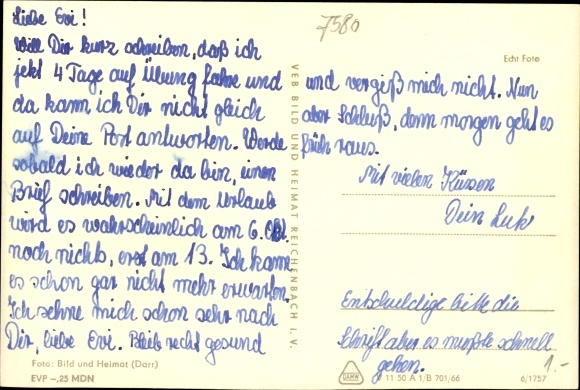 Liebe Evi!
Will Dir kurz schreiben, daß ich
jetzt 4 Tage auf Übung fahre und
da kann ich Dir nicht gleich
auf Deine Post antworten. Werde
sobald ich wieder da bin, einen
Brief schreiben. Mit dem Urlaub
wird es wahrscheinlich am 6. Okt.
noch nichts, erst am 13. Ich kann
es schon gar nicht mehr erwarten.
Ich sehne mich schon sehr nach
Dir, liebe Evi. Bleib recht gesund
Foto: Bild und Heimat (Darr)
EVP –,25 MDN
VEB BILD UND HEIMAT REICHENBACH I. V.
7580
Echt Foto
und vergiß mich nicht. Nun
aber Schluß, denn morgen geht es
früh raus.
Mit vielen Küssen
Dein Luk
Entschuldige bitte die
Schrift aber es mußte schnell
gehen.
1.-
DAMW
11 50 A 1/B 701/66
6/1757